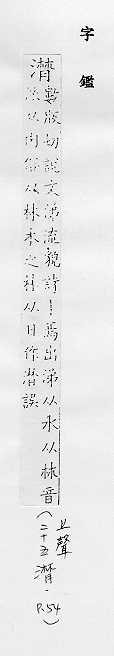 字鑑
潸
數版切說文涕流貌詩〡焉出涕从水从𣏟音
派从肉俗从林木之林从日作潸誤
上聲
(二十五潸. P.54)